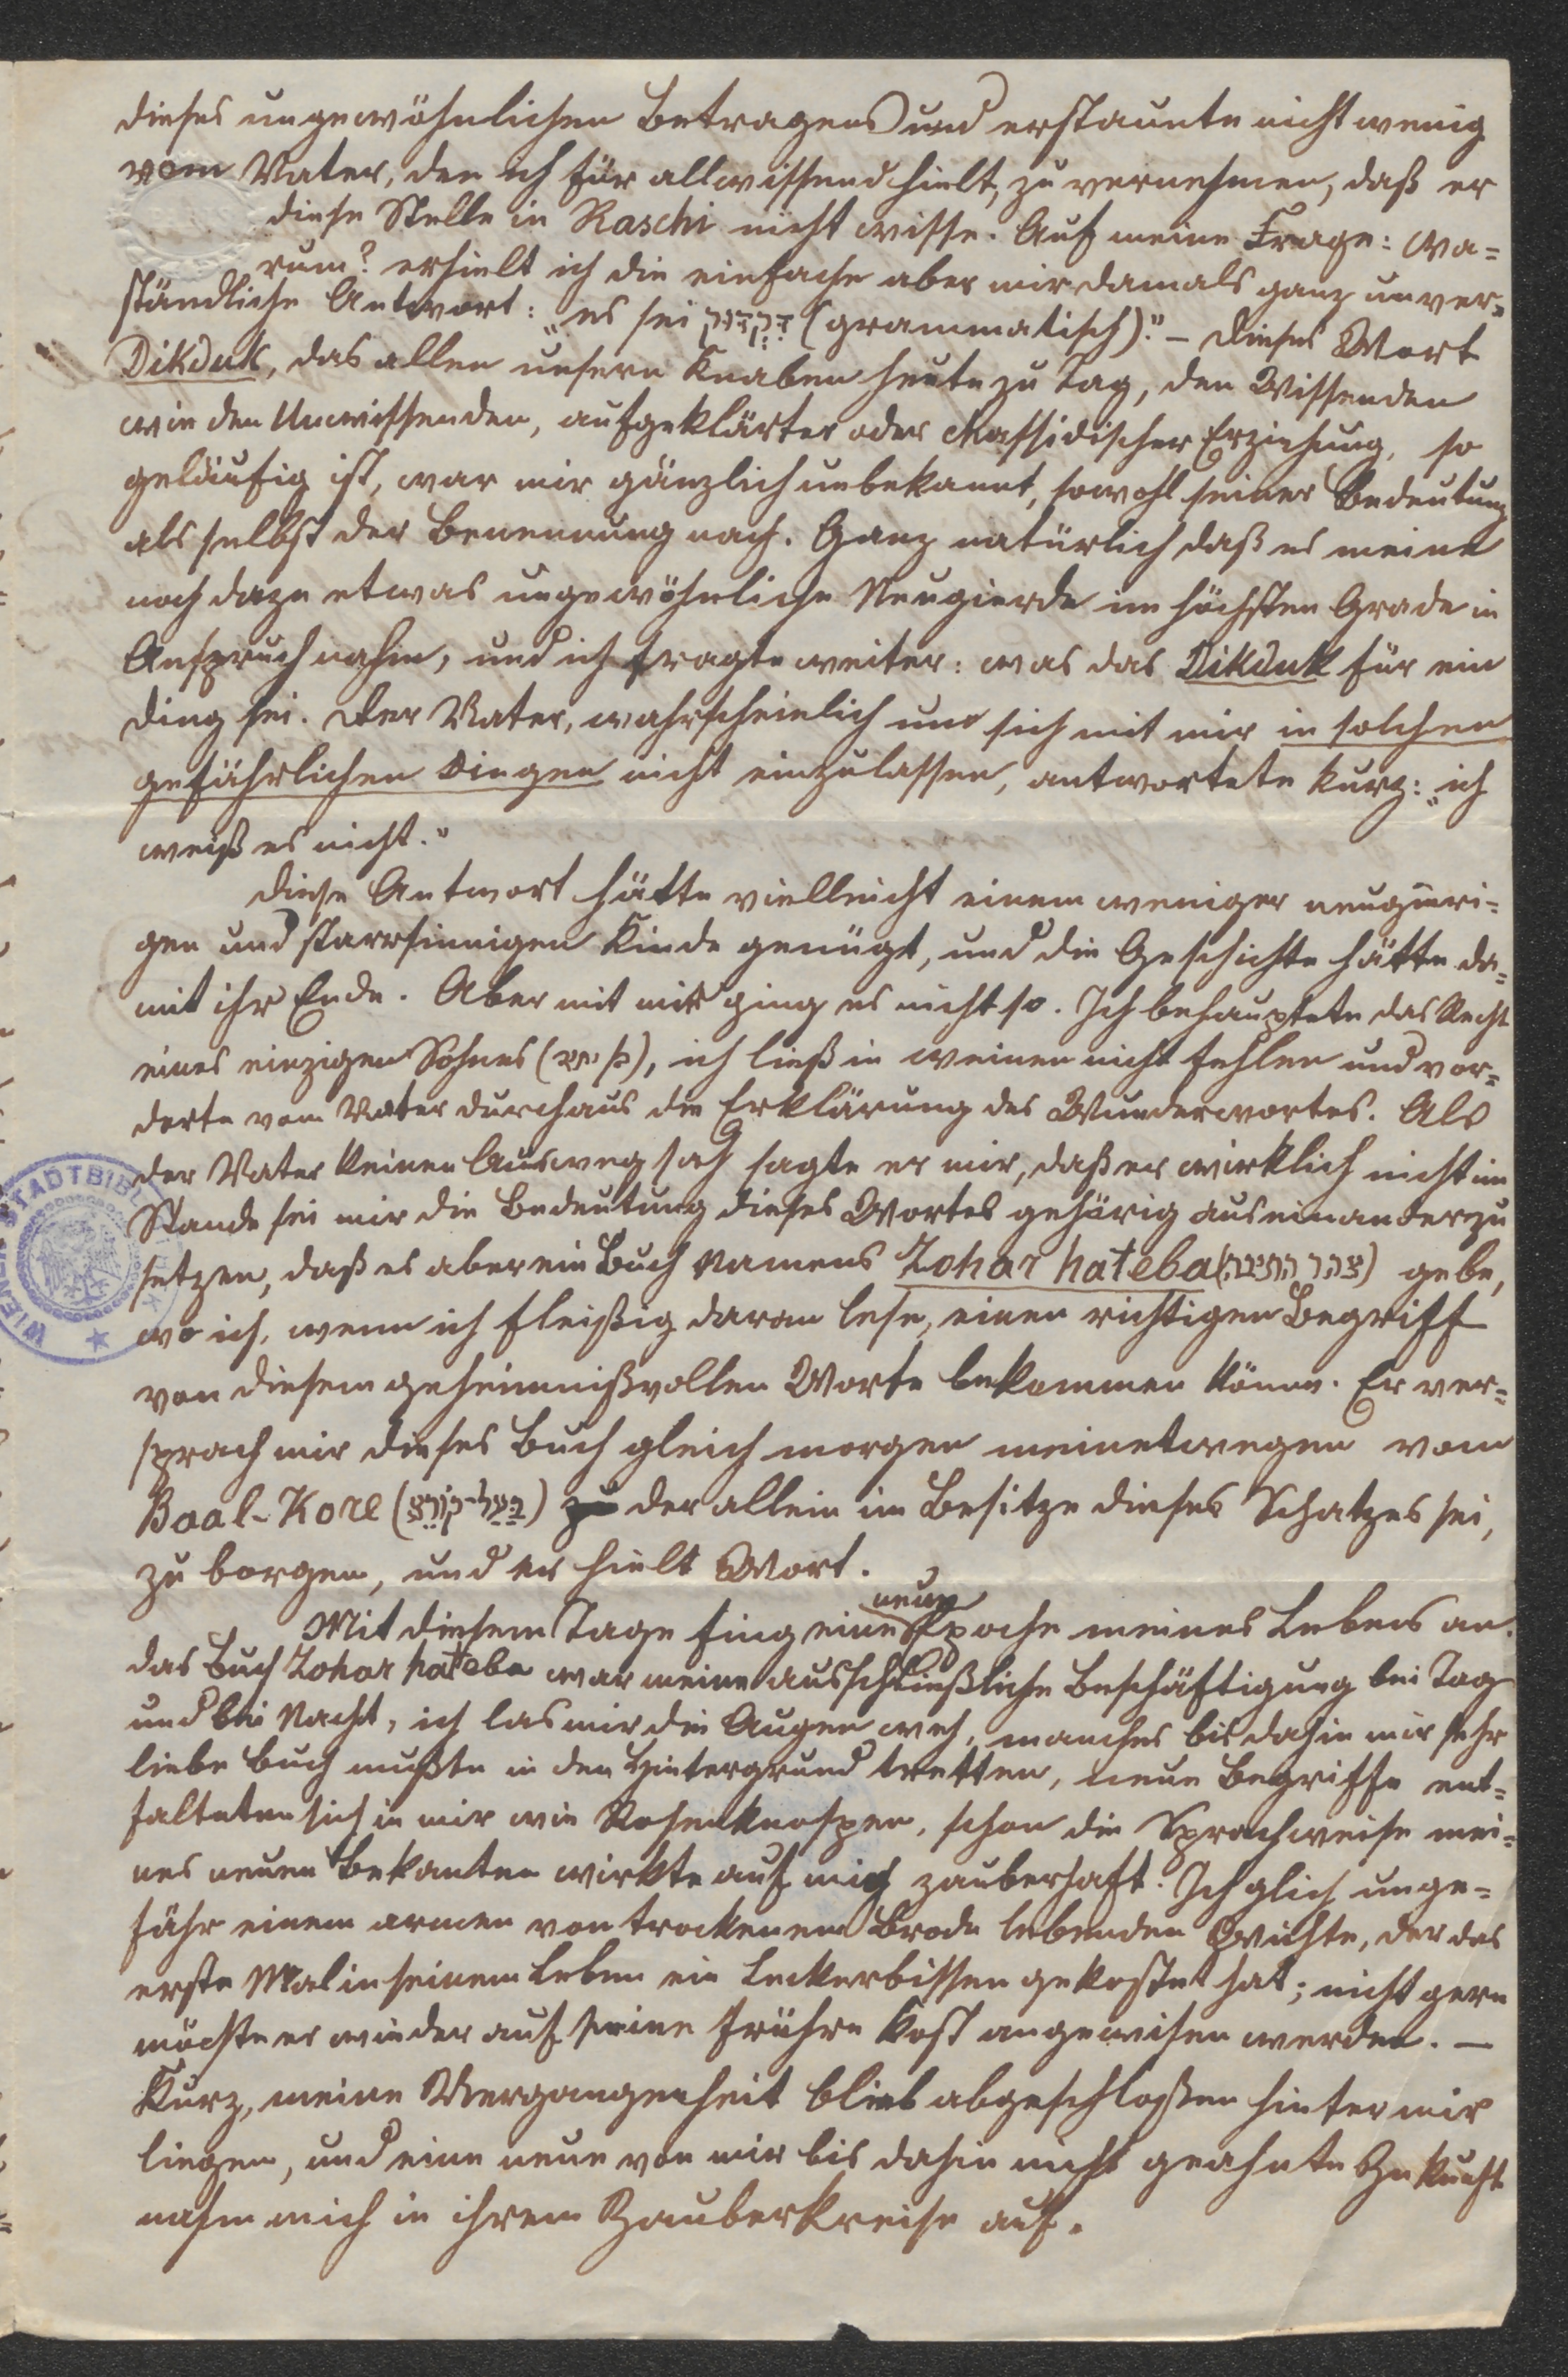 dieses ungewöhnlichen Betragens und erstaunte nicht wenig
vom Vater, den ich für allwissend hielt, zu vernehmen, daß er
diese Stelle in Raschi nicht wisse. Auf meine Frage: wa=
rum? erhielt ich die einfache aber mir damals ganz unver=
ständliche Antwort: „es sei דִקְדוּק (grammatisch)." – Dieses Wort
Dikduk, das allen unsern Knaben heute zu Tag, den Wissenden
wie den Unwissenden, aufgeklärter oder chassidischer Erziehung, so
geläufig ist, war mir gänzlich unbekannt, sowohl seiner Bedeutung
als selbst der Benennung nach. Ganz natürlich daß es meine
noch dazu etwas ungewöhnliche Neugierde im höchsten Grade in
Anspruch nahm, und ich fragte weiter: was das Dikduk für ein
Ding sei. Der Vater, wahrscheinlich um sich mit mir in solchen
gefährlichen Dingen nicht einzulassen, antwortete kurz: „ich
weiß es nicht."
Diese Antwort hätte vielleicht einem weniger neugieri=
gen und starrsinnigen Kinde genügt, und die Geschichte hätte da=
mit ihr Ende. Aber mit mir ging es nicht so. Ich behauptete das Recht
eines einzigen Sohnes (בן יחיד), ich ließ in weinen nicht fehlen und vor=
derte vom Vater durchaus die Erklärung des Wunderwortes. Als
der Vater keinen Ausweg sah sagte er mir, daß er wirklich nicht im
Stande sei mir die Bedeutung dieses Wortes gehörig auseinanderzu
setzen, daß es aber ein Buch namens Zohar hateba (צהר התיבה) gebe,
wo ich, wenn ich fleißig daran lese, einen richtigen Begriff
von diesem geheimnißvollen Worte bekommen könne. Er ver=
sprach mir dieses Buch gleich morgen meinetwegen vom
Baal-Kore (בַּעַל־קוֹרֵא) der allein im Besitze dieses Schatzes sei,
zu borgen, und er hielt Wort.
Mit diesem Tage fing eine neue Epoche meines Lebens an.
das Buch Zohar hateba war meine ausschließliche Beschäftigung bei Tag
und bei Nacht, ich las mir die Augen weh, manches bis dahin mir sehr
liebe Buch mußte in den Hintergrund tretten, neue Begriffe ent=
falteten sich in mir wie Rosenknospen, schon die Sprachweise mei=
nes neuen Bekanten wirkte auf mich zauberhaft. Ich glich unge=
fähr einem armen von trockenem Brode lebenden Wichte, der das
erste Mal in seinem Leben ein Leckerbissen gekostet hat; nicht gern
möchte er wieder auf seine frühre Kost angewisen werden. –
Kurz, meine Vergangenheit blieb abgeschloßen hinter mir
liegen, und eine neue von mir bis dahin nicht geahnte Zukunft
nahm mich in ihrem Zauberkreise auf.
WIENER STADTBIBL